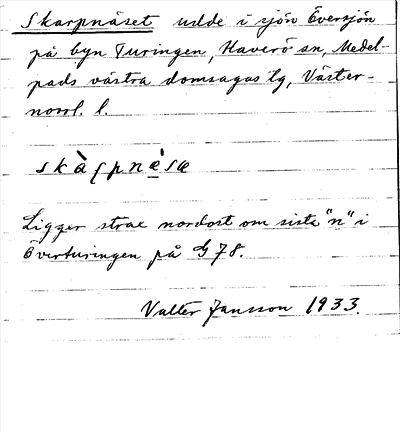 Skarpnäset udde i sjön Översjön
på byn Turingen, Haverö sn, Medel-
pads västra domsagas tg, Väster-
norrl. l.
skàʃpnæ̀sæ
Ligger strax nordost om sista "n" i
Överturingen på G 78.
Valter Jansson 1933.